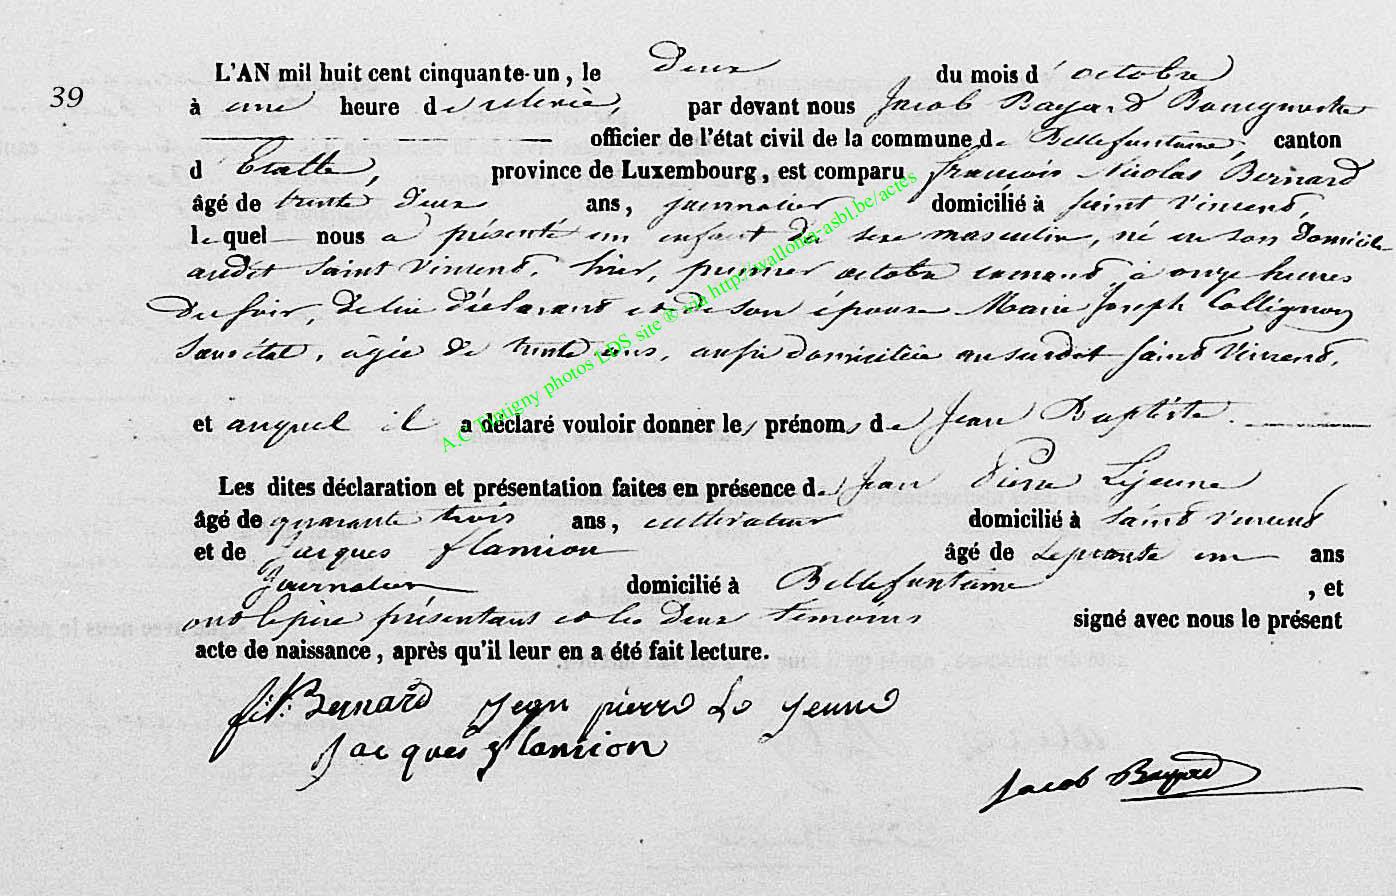 39
L'AN mil huit cent cinquante-un, le Deux du mois d'octobre
à une heure de relevée, par devant nous Jacob Bayard Bourgmestre
officier de l'état civil de la commune de Bellefontaine, canton
d'Etalle, province de Luxembourg, est comparu françois Nicolas Bernard
âgé de trente Deux ans, journalier domicilié à Saint Vincent,
lequel nous a présenté un enfant du sexe masculin, né en son Domicile
audit Saint Vincent, hier, premier octobre courant, à onze heures
Du soir, De lui Déclarant et de son épouse Marie Joseph Collignon
Sans état, âgée De trente ans, aussi domiciliée au susdit Saint Vincent,
et auquel il a déclaré vouloir donner les prénoms de Jean Baptiste.
Les dites déclaration et présentation faites en présence de Jean Pierre Lejeune
âgé de quarante trois ans, cultivateur domicilié à Saint Vincent
et de Jacques flamion âgé de Soixante un ans
Journalier domicilié à Bellefontaine, et
ont le père présentant et les Deux témoins signé avec nous le présent
acte de naissance, après qu'il leur en a été fait lecture.
Bernard Jean pierre Le Jeune
Jacques flamion
Jacob Bayard
A.C Tintigny photos LDS site ® via http://wallonia-asbl.be/actes